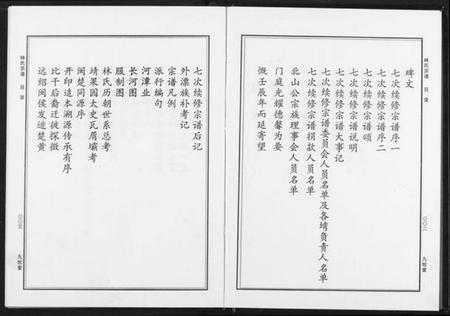 林氏宗谱 目录
碑文
七次续修宗谱序一
七次续修宗谱序二
七次续修宗谱颂
七次续修宗谱说明
七次续修宗谱大事记
七次续修宗谱委员会人员名单及各塆负责人名单
七次续修宗谱捐款人员名单
北山公宗族理事会人员名单
门庭光耀德馨为要
慨壬辰年而延寄望
〇〇二
九牧堂
林氏宗谱 目录
七次续修宗谱后记
外漂族补考记
宗谱凡例
派行编句
河潭业
长河图
服制图
林氏历朝世系总考
靖果园太史瓦屑壩考
闽楚同源序
开印追本溯源传承有序
比干后裔迁徙探微
远绍闽侯发迹楚黄
〇〇三
九牧堂